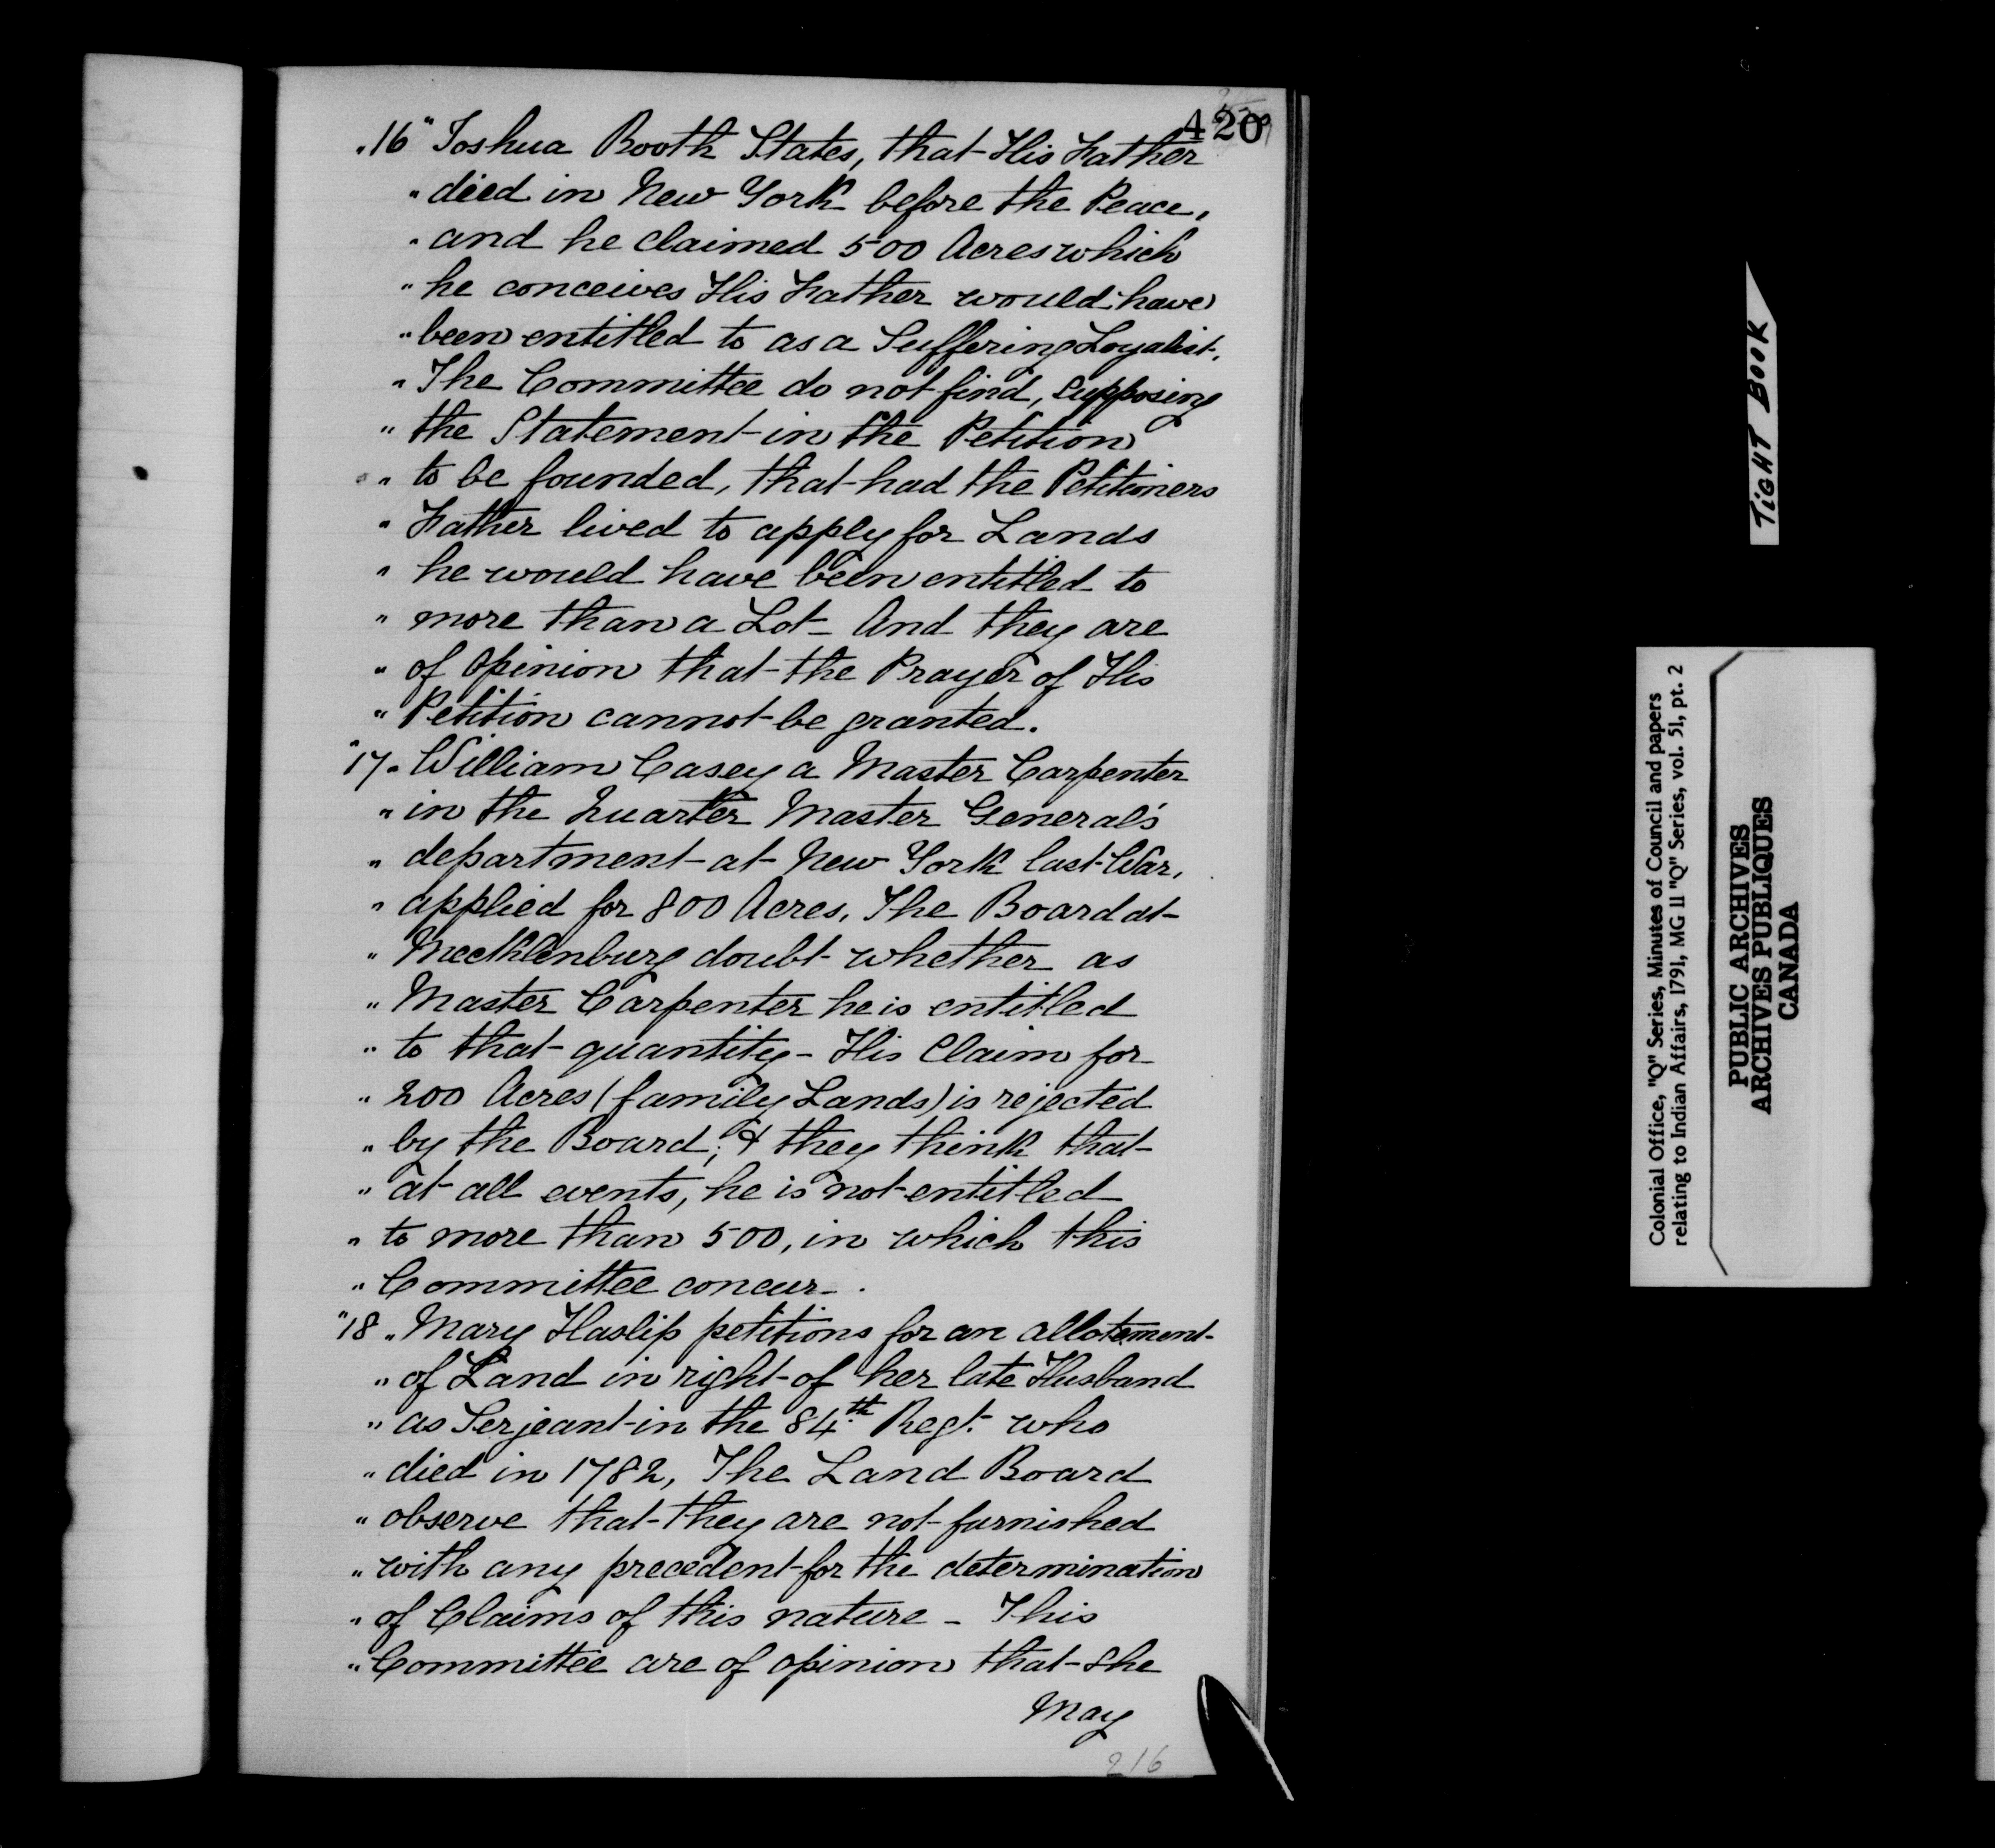 420
"16" Joshua Booth States, that His Father
" died in New York before the Peace,
" and he claimed 500 Acres which
" he conceives His Father would have
" been entitled to as a Suffering Loyalist.
" The Committee do not find, supposing
" the Statement in the Petition
" to be founded, that had the Petitioners
" Father lived to apply for Lands
" he would have been entitled to
" more than a Lot – And they are
" of Opinion that the Prayer of His
" Petition cannot be granted.
"17. William Casey a Master Carpenter
" in the Quarter Master General's
" department at New York last War,
" applied for 800 Acres, The Board at
" Mecklenburg doubt whether as
" Master Carpenter he is entitled
" to that quantity – His Claim for
" 200 Acres (family Lands) is rejected
" by the Board; & they think that
" at all events, he is not entitled
" to more than 500, in which this
" Committee concur –.
"18 " Mary Haslip petitions for an allotement
" of Land in right of her late Husband
" as Serjeant in the 84th Regt. who
" died in 1782, The Land Board
" observe that they are not furnished
" with any precedent for the determination
" of Claims of this nature – This
" Committee are of opinion that She
May
216
TIGHT BOOK
Colonial Office, "Q" Series, Minutes of Council and papers
relating to Indian Affairs, 1791, MG 11 "Q" Series, vol. 51, pt. 2
PUBLIC ARCHIVES
ARCHIVES PUBLIQUES
CANADA